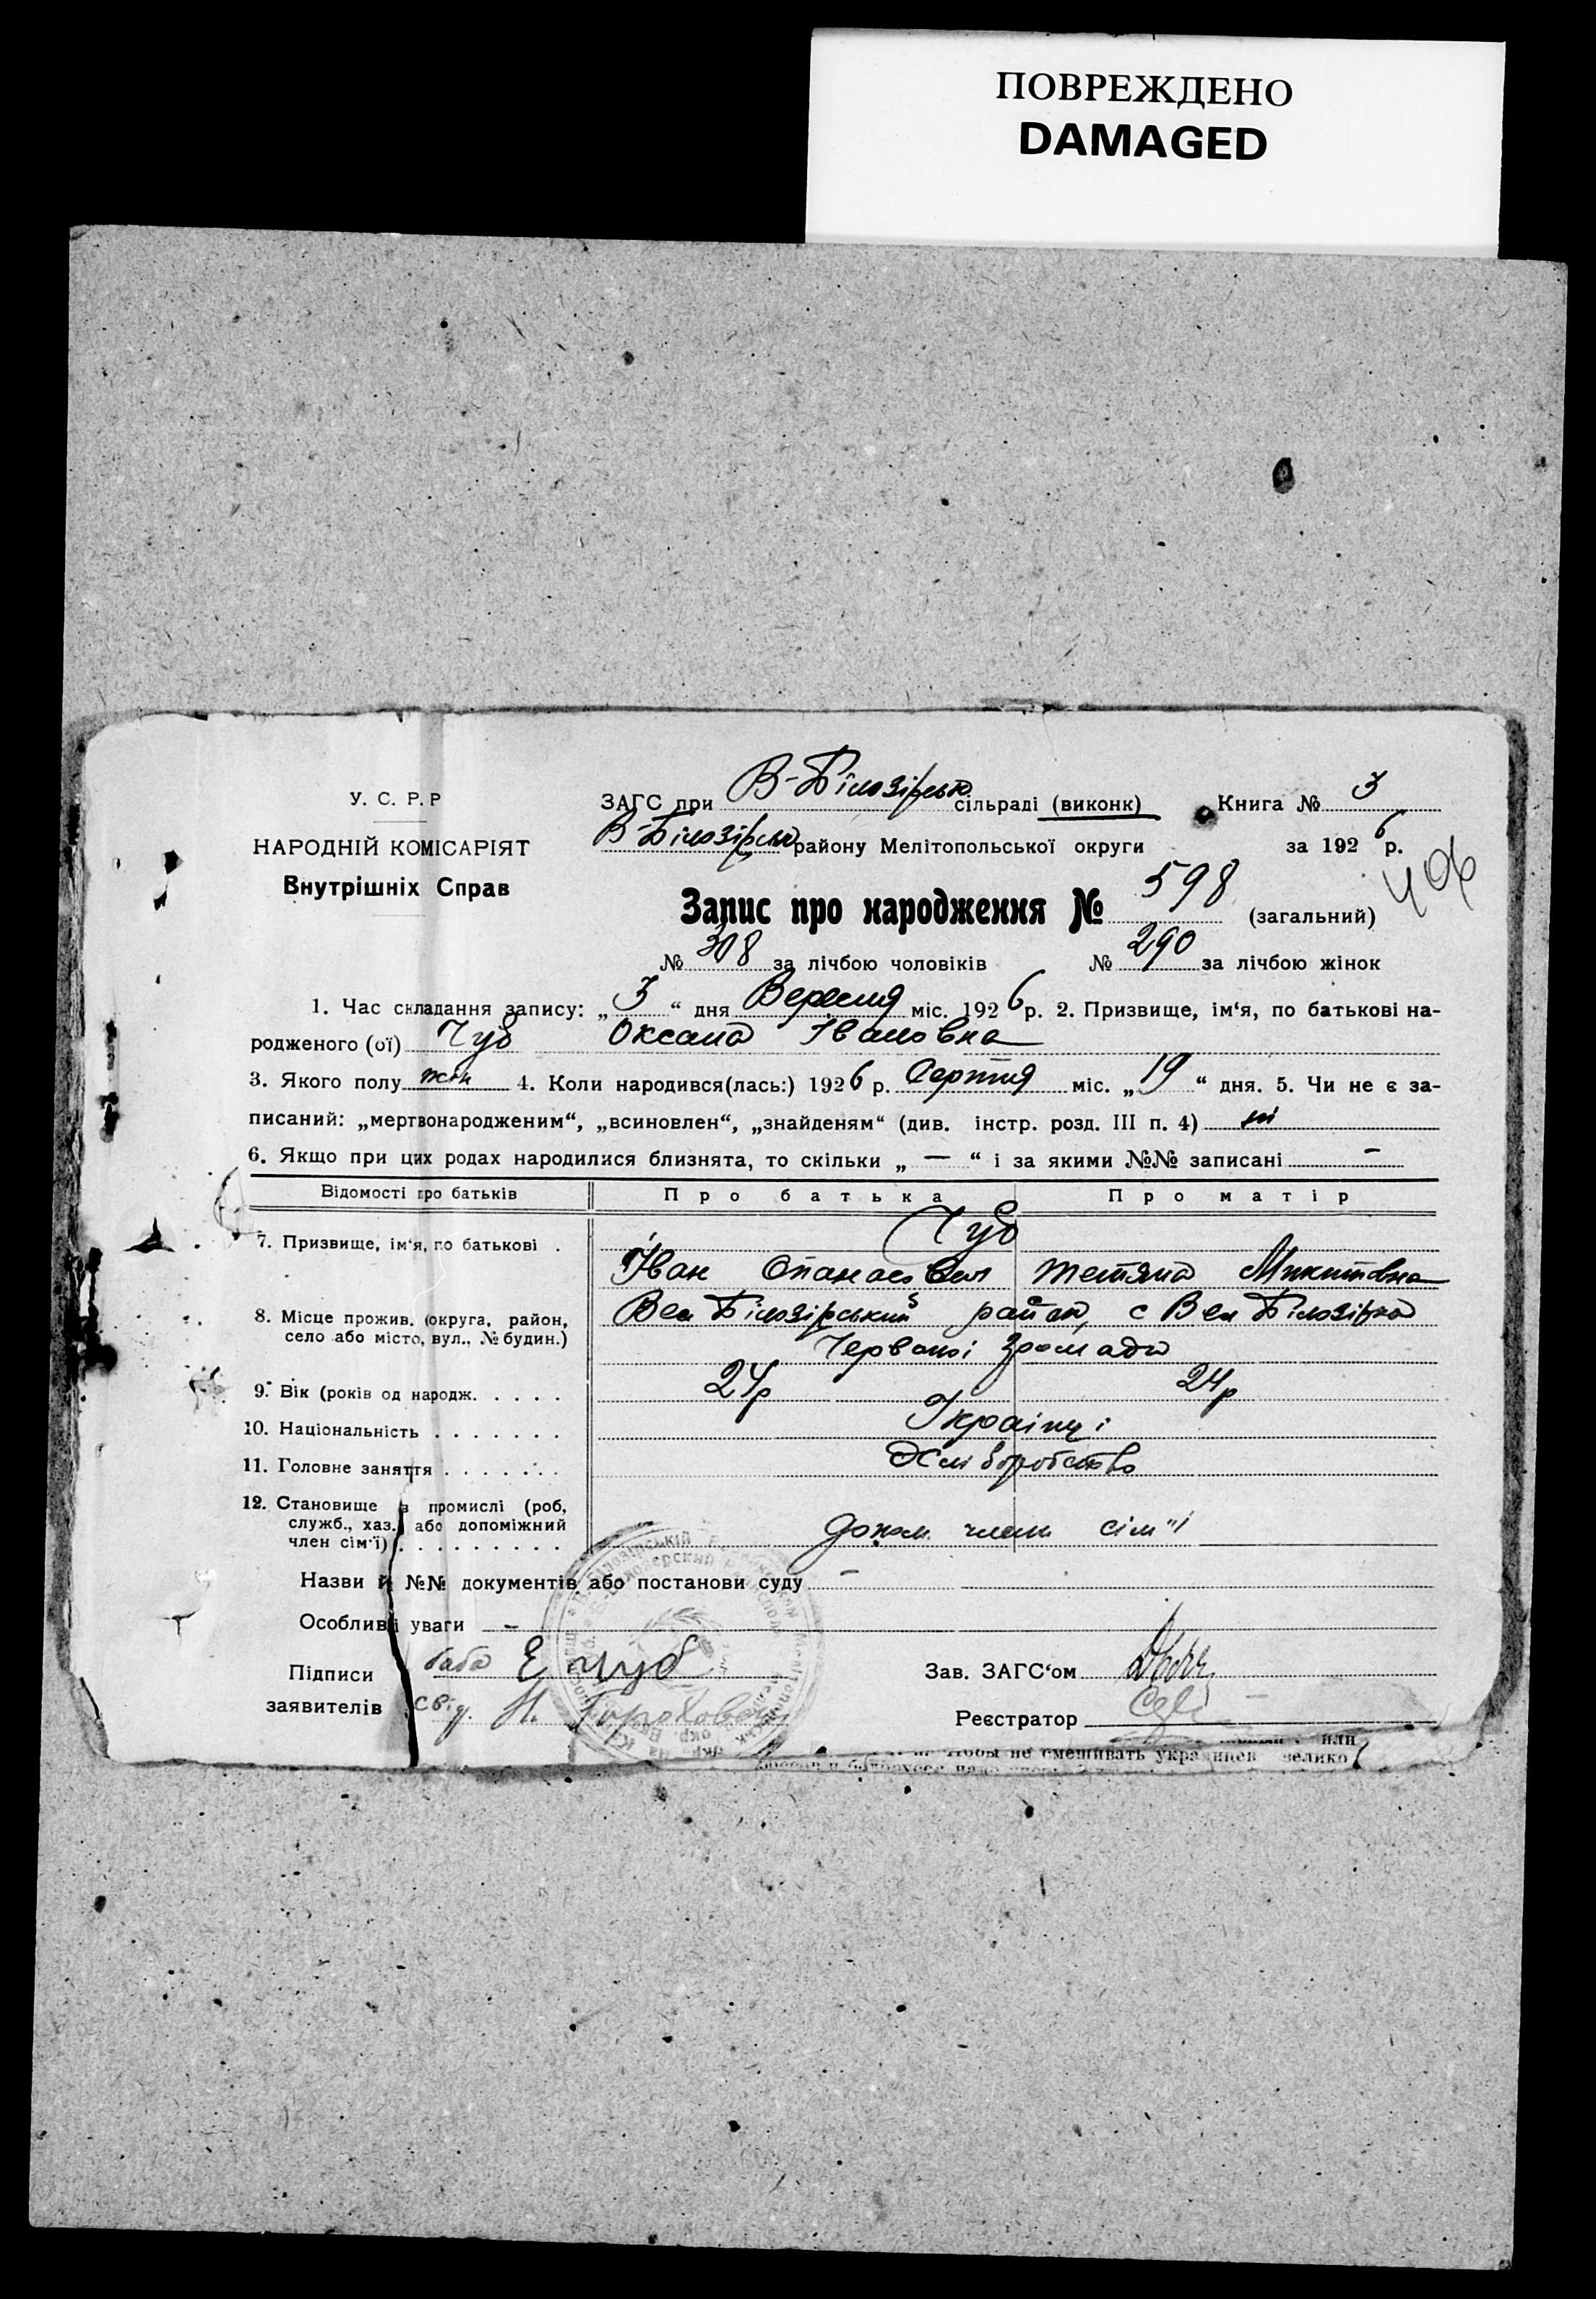 ПОВРЕЖДЕНО
DAMAGED
У. С. Р. Р
НАРОДНІЙ КОМІСАРІЯТ
Внутрішніх Справ
ЗАГС при В-Білозірсько сільраді (виконк) Книга № 3
В-Білозірсько району Мелітопольської округи за 1926 р.
Запис про народження № 598 (загальний)
№ 308 за лічбою чоловіків № 290 за лічбою жінок
1. Час складання запису: „3“ дня Вересня міс. 1926 р. 2. Призвище, ім‘я, по батькові на-
родженого (ої) Чуб Оксана Івановна
3. Якого полу жін 4. Коли народився(лась:) 1926 р. Серпня міс. „19“ дня. 5. Чи не є за-
писаний: „мертвонародженим“, „всиновлен“, „знайденям“ (див. інстр. розд. III п. 4) ні
6. Якщо при цих родах народилися близнята, то скільки „ — “ і за якими №№ записані -
Відомості про батьків Про батька Про матір
Чуб
7. Призвище, ім‘я, по батькові .
Іван Опанасович Тетяна Микитовна
8. Місце прожив. (округа, район, Вел Білозірський район, с Вел Білозірка
село або місто, вул., № будин.) Червоної громади
9. Вік (років од народж. . . . . 24р 24р
10. Національність . . . . . . . Українці
11. Головне заняття . . . . . . . Хліборобство
12. Становище в промислі (роб,
служб., хаз., або допоміжний допом. члени сім"ї
член сім‘ї) . . . . . . . . .
Назви й №№ документів або постанови суду -
Особливі уваги -
Підписи баба Е Чуб Зав. ЗАГС‘ом
заявителів Свід. Н.
Реєстратор
чтобы не смешивать украинцев велико